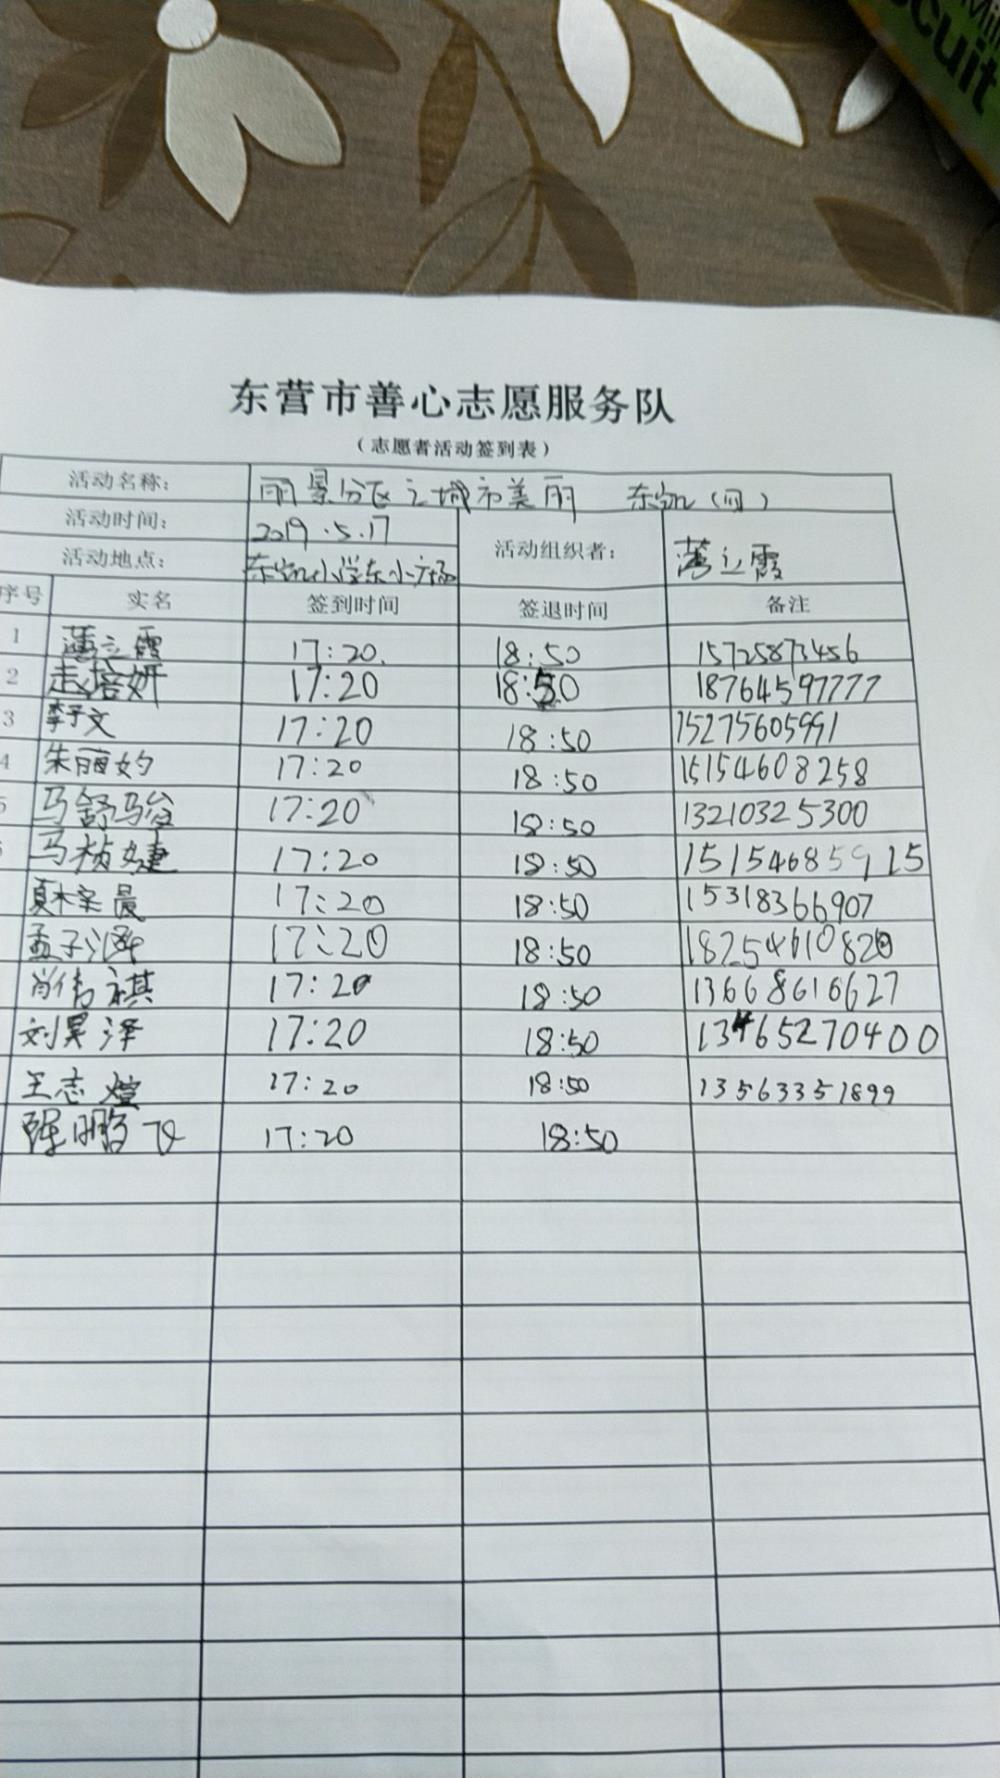 cuit
东营市善心志愿服务队
（志愿者活动签到表）
活动名称： 雨景分区之城市美丽 东凯（四）
活动时间： 2019.5.17 活动组织者： 薄立霞
活动地点： 东凯小学东小广场
序号 实名 签到时间 签退时间 备注
1 薄立霞 17:20. 18:50 15725873456
2 赵培妍 17:20 18:50 18764597777
3 李子文 17:20 18:50 15275605991
4 朱丽妁 17:20 18:50 15154608258
5 马舒骏 17:20 18:50 13210325300
马桢婕 17:20 18:50 15154685915
夏梓晨 17:20 18:50 15318366907
孟子涵 17:20 18:50 18254610820
肖伟祺 17:20 18:50 13668616627
刘昊泽 17:20 18:50 13465270400
王志煊 17:20 18:50 13563351899
陈鹏飞 17:20 18:50